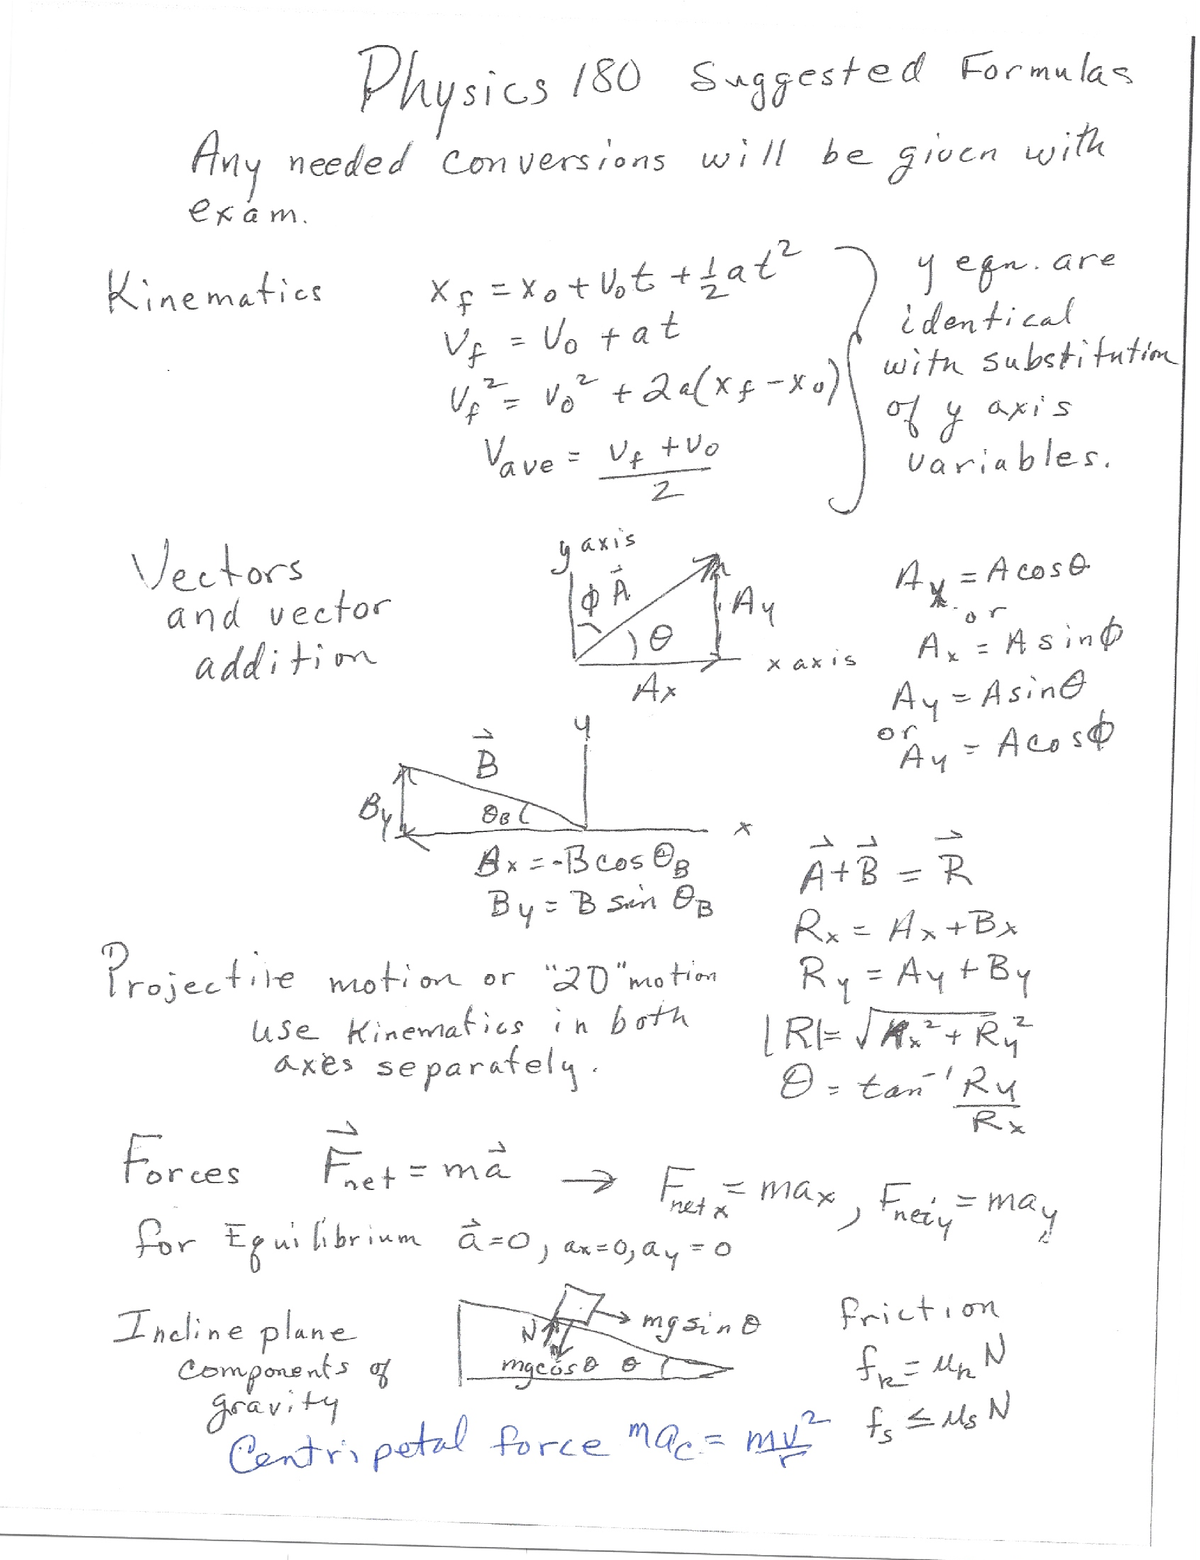 Physics 180 Suggested Formulas
Any needed conversions will be given with
exam.
Kinematics
x_f = x_0 + v_0t + ½at²
v_f = v_0 + at
v_f² = v_0² + 2a(x_f - x_0)
v_ave = (v_f + v_0)/2
y eqn. are
identical
with substitution
of y axis
variables.
Vectors
and vector
addition
y axis
ϕ A⃗
Ay
θ
x axis
Ax
Ax = A cosθ
or
Ax = A sinϕ
Ay = A sinθ
or
Ay = A cosϕ
y
B⃗
By
θB
x
Bx = -B cos θB
By = B sin θB
A⃗ + B⃗ = R⃗
Rx = Ax + Bx
Ry = Ay + By
|R| = √(Rx² + Ry²)
θ = tan⁻¹ Ry/Rx
Projectile motion or "2D" motion
use Kinematics in both
axes separately.
Forces F⃗net = ma⃗ → Fnet x = max, Fnet y = may
for Equilibrium a⃗=0, ax=0, ay=0
Incline plane
components of
gravity
N
mg sinθ
mg cosθ θ
friction
f_k = μ_k N
f_s ≤ μ_s N
Centripetal force ma_c = mv²/r